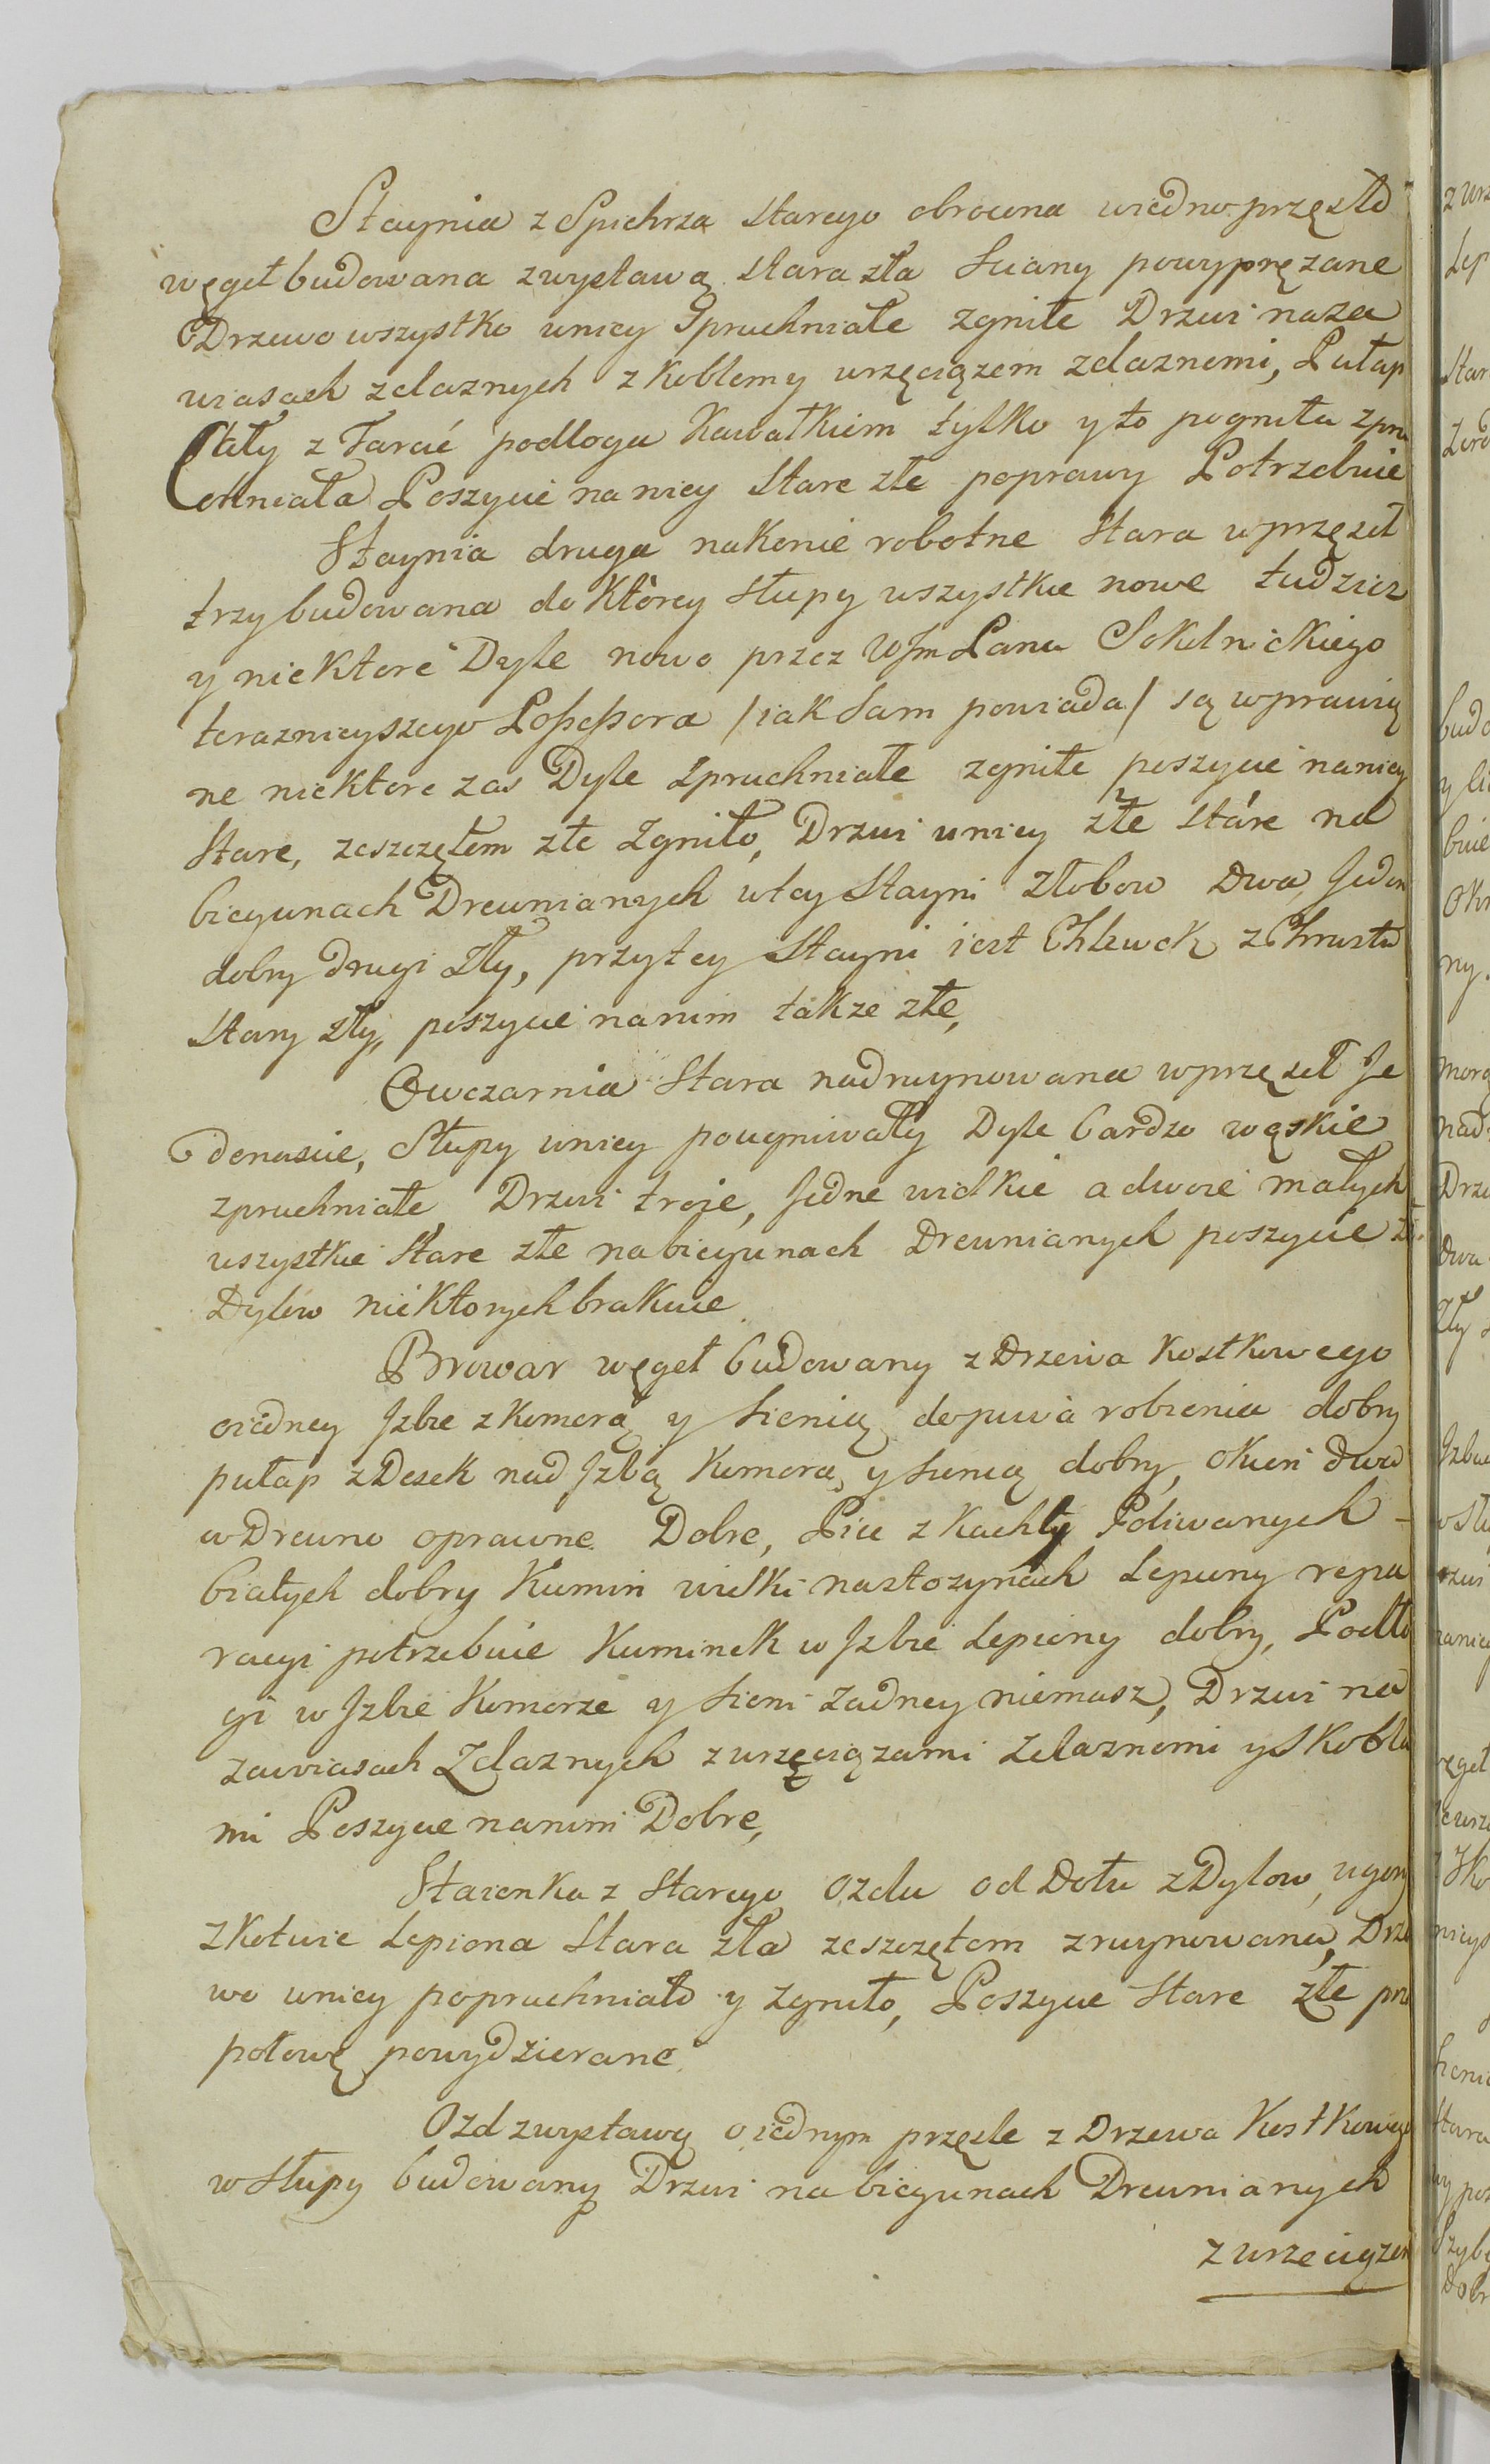 Staynia z Spichrza starego obrocona wiedno przęsło
węgeł budowana zwystawą stara zła sciany powyprężane
Drzewo wszystko wniey spruchniałe zgniłe Drzwi naza
wiasach zelaznych zkoblemy wrzęciązem zelaznemi, Pułap
Cały z Tarcić podłoga kawałkiem tylko yto pogniła zpru
chniała Poszycie naniey stare złe poprawy Potrzebuie
Staynia druga nakonie robotne stara wprzęseł
trzy budowana do którey słupy wszystkie nowe tudziez
y niektore Dyle nowo przez WJm Pana Sokolnickiego
teraznieyszego Possessora /iak sam powiada/ są wprawio
ne niektore zas Dyle spruchniałe zgniłe poszycie naniey
stare, zeszczętem złe zgniło, Drzwi wniey złe stáre na
biegunach Drewnianych wtey Stayni złobow dwa, Jeden
dobry drugi zły, przytey Stayni iest Chlewek z Chrustu
stary zły, poszycie nanim także złe,
Owczarnia stara nadruynowana wprzęseł Je
denascie, Słupy wniey powygniwały Dyle bardzo wąskie
zpruchniałe Drzwi troie, Jedne wielkie a dwoie małych
wszystkie stare złe nabiegunach Drewnianych poszycie złe
Dylów niektorych brakuie.
Browar węgeł budowany z Drzewa kostkowego
oiedney Jzbie zkomorą y sienią dopiwa robienia dobry
pułap z Desek nad Jzbą komorą, y sienią dobry, okien dwa
wDrewno oprawne Dobre, Piec z kachly Poliwanych
białych dobry Kumin wielki nastozynach Lepiony repa
racyi potrzebuie Kuminek w Jzbie Lepiony dobry, Podło
gi w Jzbie Komorze y sieni zadney niemasz, Drzwi na
zawiasach Zelaznych zwrzęciązami zelaznemi y skobla
mi Poszycie nanim Dobre,
Staienka z starego ozdu od Dołu z Dylow, ugory
zkotwie Lepiona stara zła zeszczętem zruynowana, Drze
wo wniey popruchniało y zgniło, Poszycie stare złe prze
połowę powydzierane.
Ozd zwystawą oiednym przęsle z Drzewa Kostkowego
wsłupy budowany Drzwi nabiegunach Drewnianych
zwrzeciązem